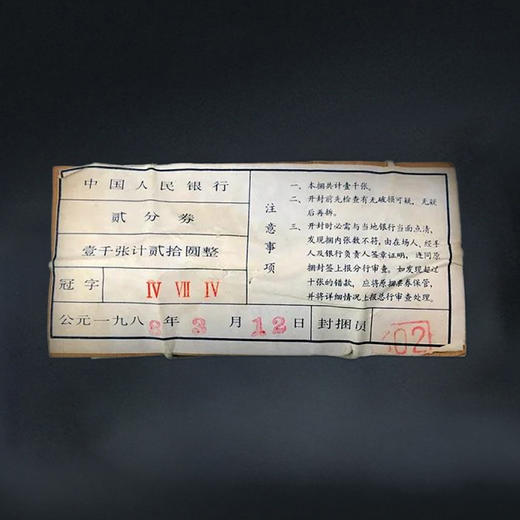 中国人民银行
贰分券
壹千张计贰拾圆整
冠字 Ⅳ Ⅶ Ⅳ
公元一九八8年3月12日 封捆员 02
注意事项
一、本捆共计壹千张。
二、开封前先检查有无破损可疑，无疑
后再拆。
三、开封时必需与当地银行当面点清，
发现捆内张数不符，由在场人、经手
人及银行负责人签章证明，连同原
捆封签上报分行审查。如发现超过
十张的错款，应将原捆票券保管，
并将详细情况上报总行审查处理。